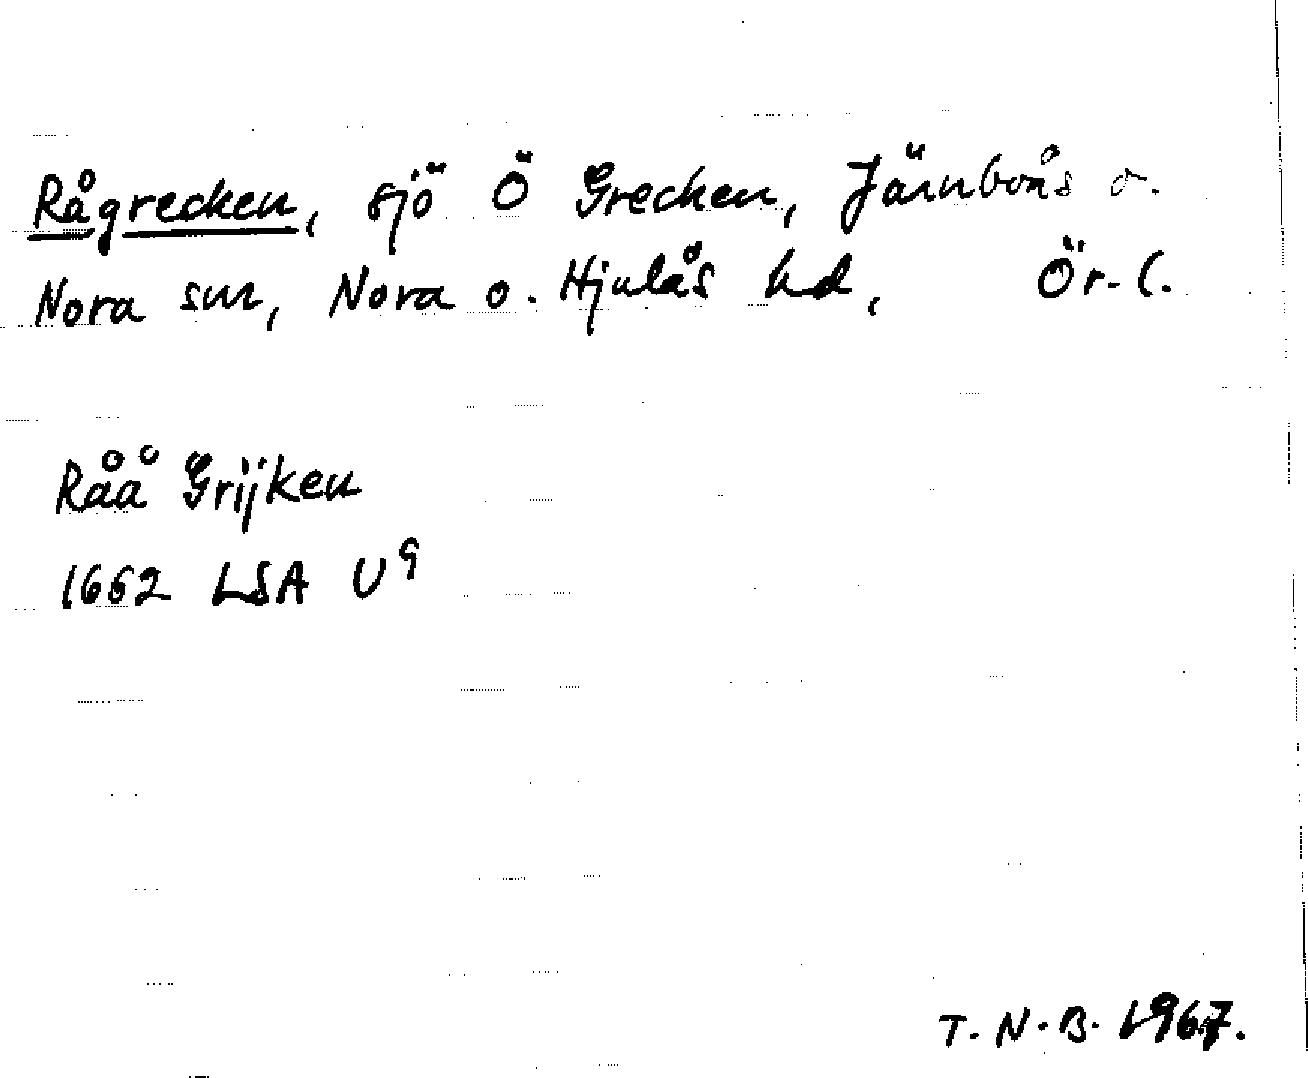 Rågrecken, sjö Ö Grecken, Järnboås o.
Nora snr, Nora o. Hjulås hd, Ör. l.
Råå Grijken
1662 LSA U9
T. N. B. 1967.